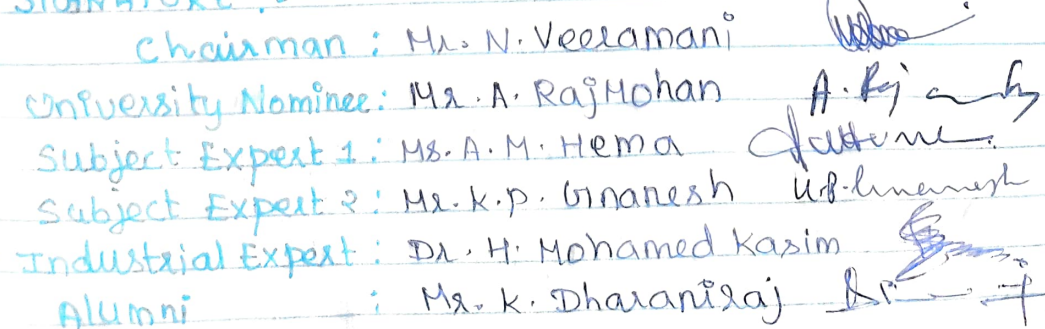 SIGNATURE :
Chairman : Mr. N. Veeramani
University Nominee : Mr. A. RajMohan A. Raj
Subject Expert 1 : Ms. A. M. Hema
Subject Expert 2 : Mr. K. P. Gnanesh
Industrial Expert : Dr. H. Mohamed Kasim
Alumni : Mr. K. Dharaniraj